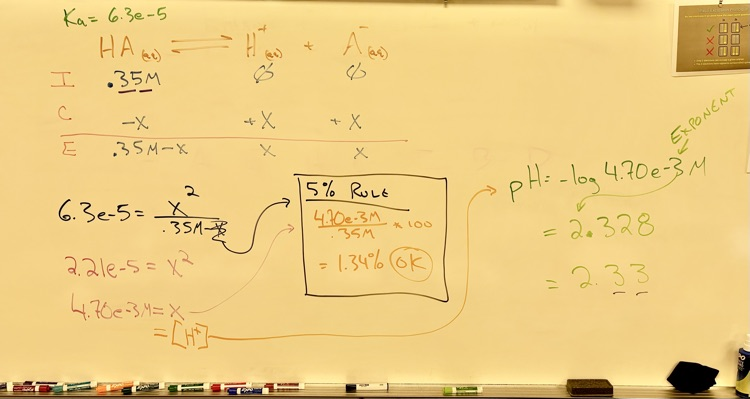 Ka = 6.3e-5
HA(aq) ⇌ H⁺(aq) + A⁻(aq)
I .35M ∅ ∅
C -x +x +x
E .35M-x x x
6.3e-5 = x² / .35M-x
2.21e-5 = x²
4.70e-3M = x
= [H⁺]
5% RULE
4.70e-3M / .35M × 100
= 1.34% OK
EXPONENT
pH = -log 4.70e-3M
= 2.328
= 2.33